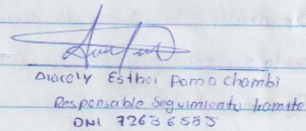 Aracely Esther Poma Chambi
Responsable Seguimiento tramite
DNI 72636555